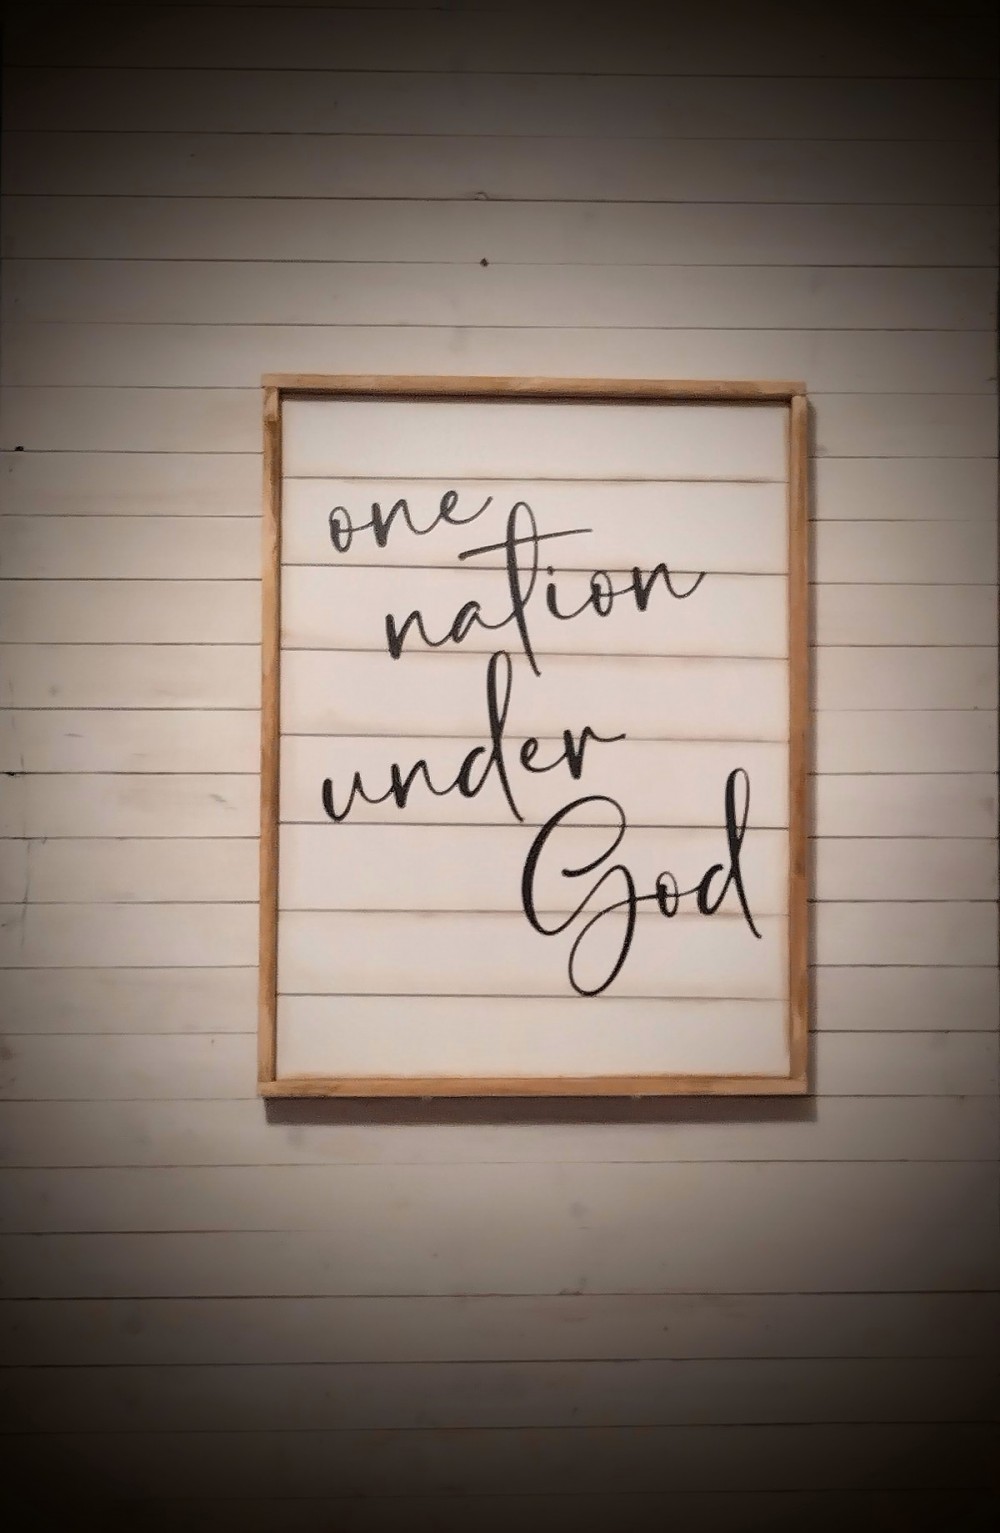 one
nation
under
God